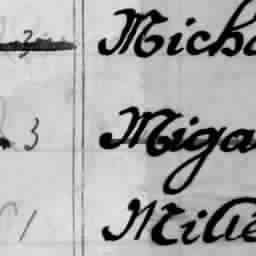 3 Micha
3 Miga
1 Milié